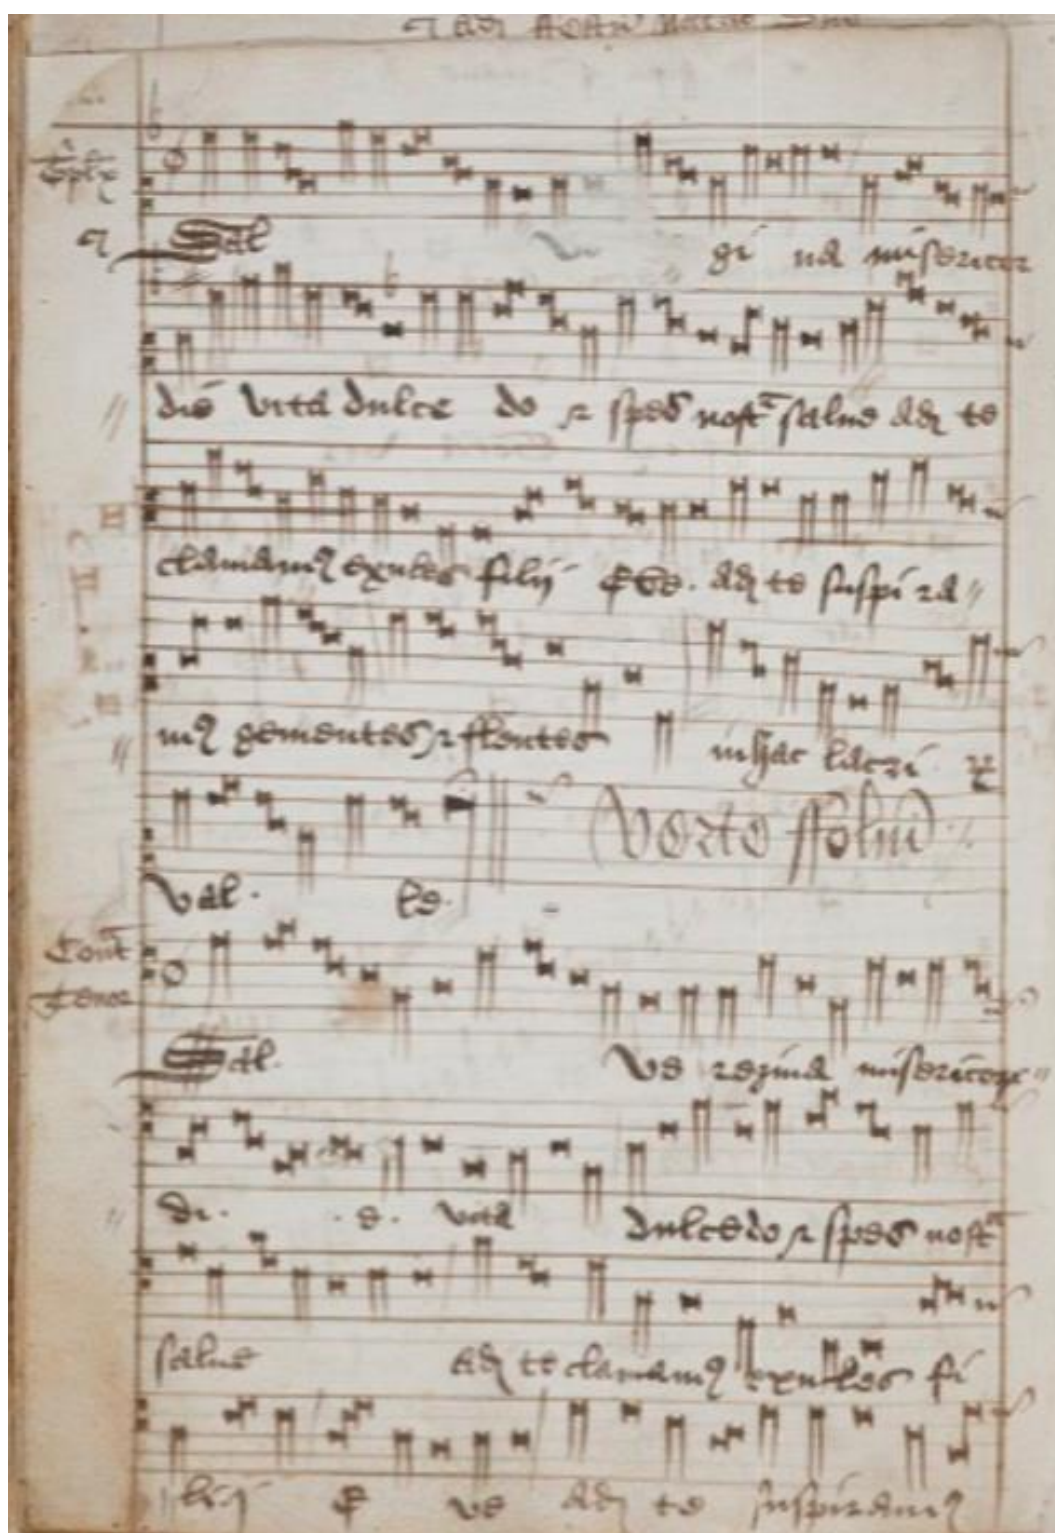 Sal gi na misericor
die vita dulce do spes nostra salve ad te
clamamus exules filij Eve. ad te suspira
mus gementes et flentes in hac lacri
Verte folium
val. le.
Contra
Tenor
Sal. ve regina misericor
di. e. vita dulcedo et spes nostra
salve ad te clamamus exules fi
lij E ve ad te suspiramus